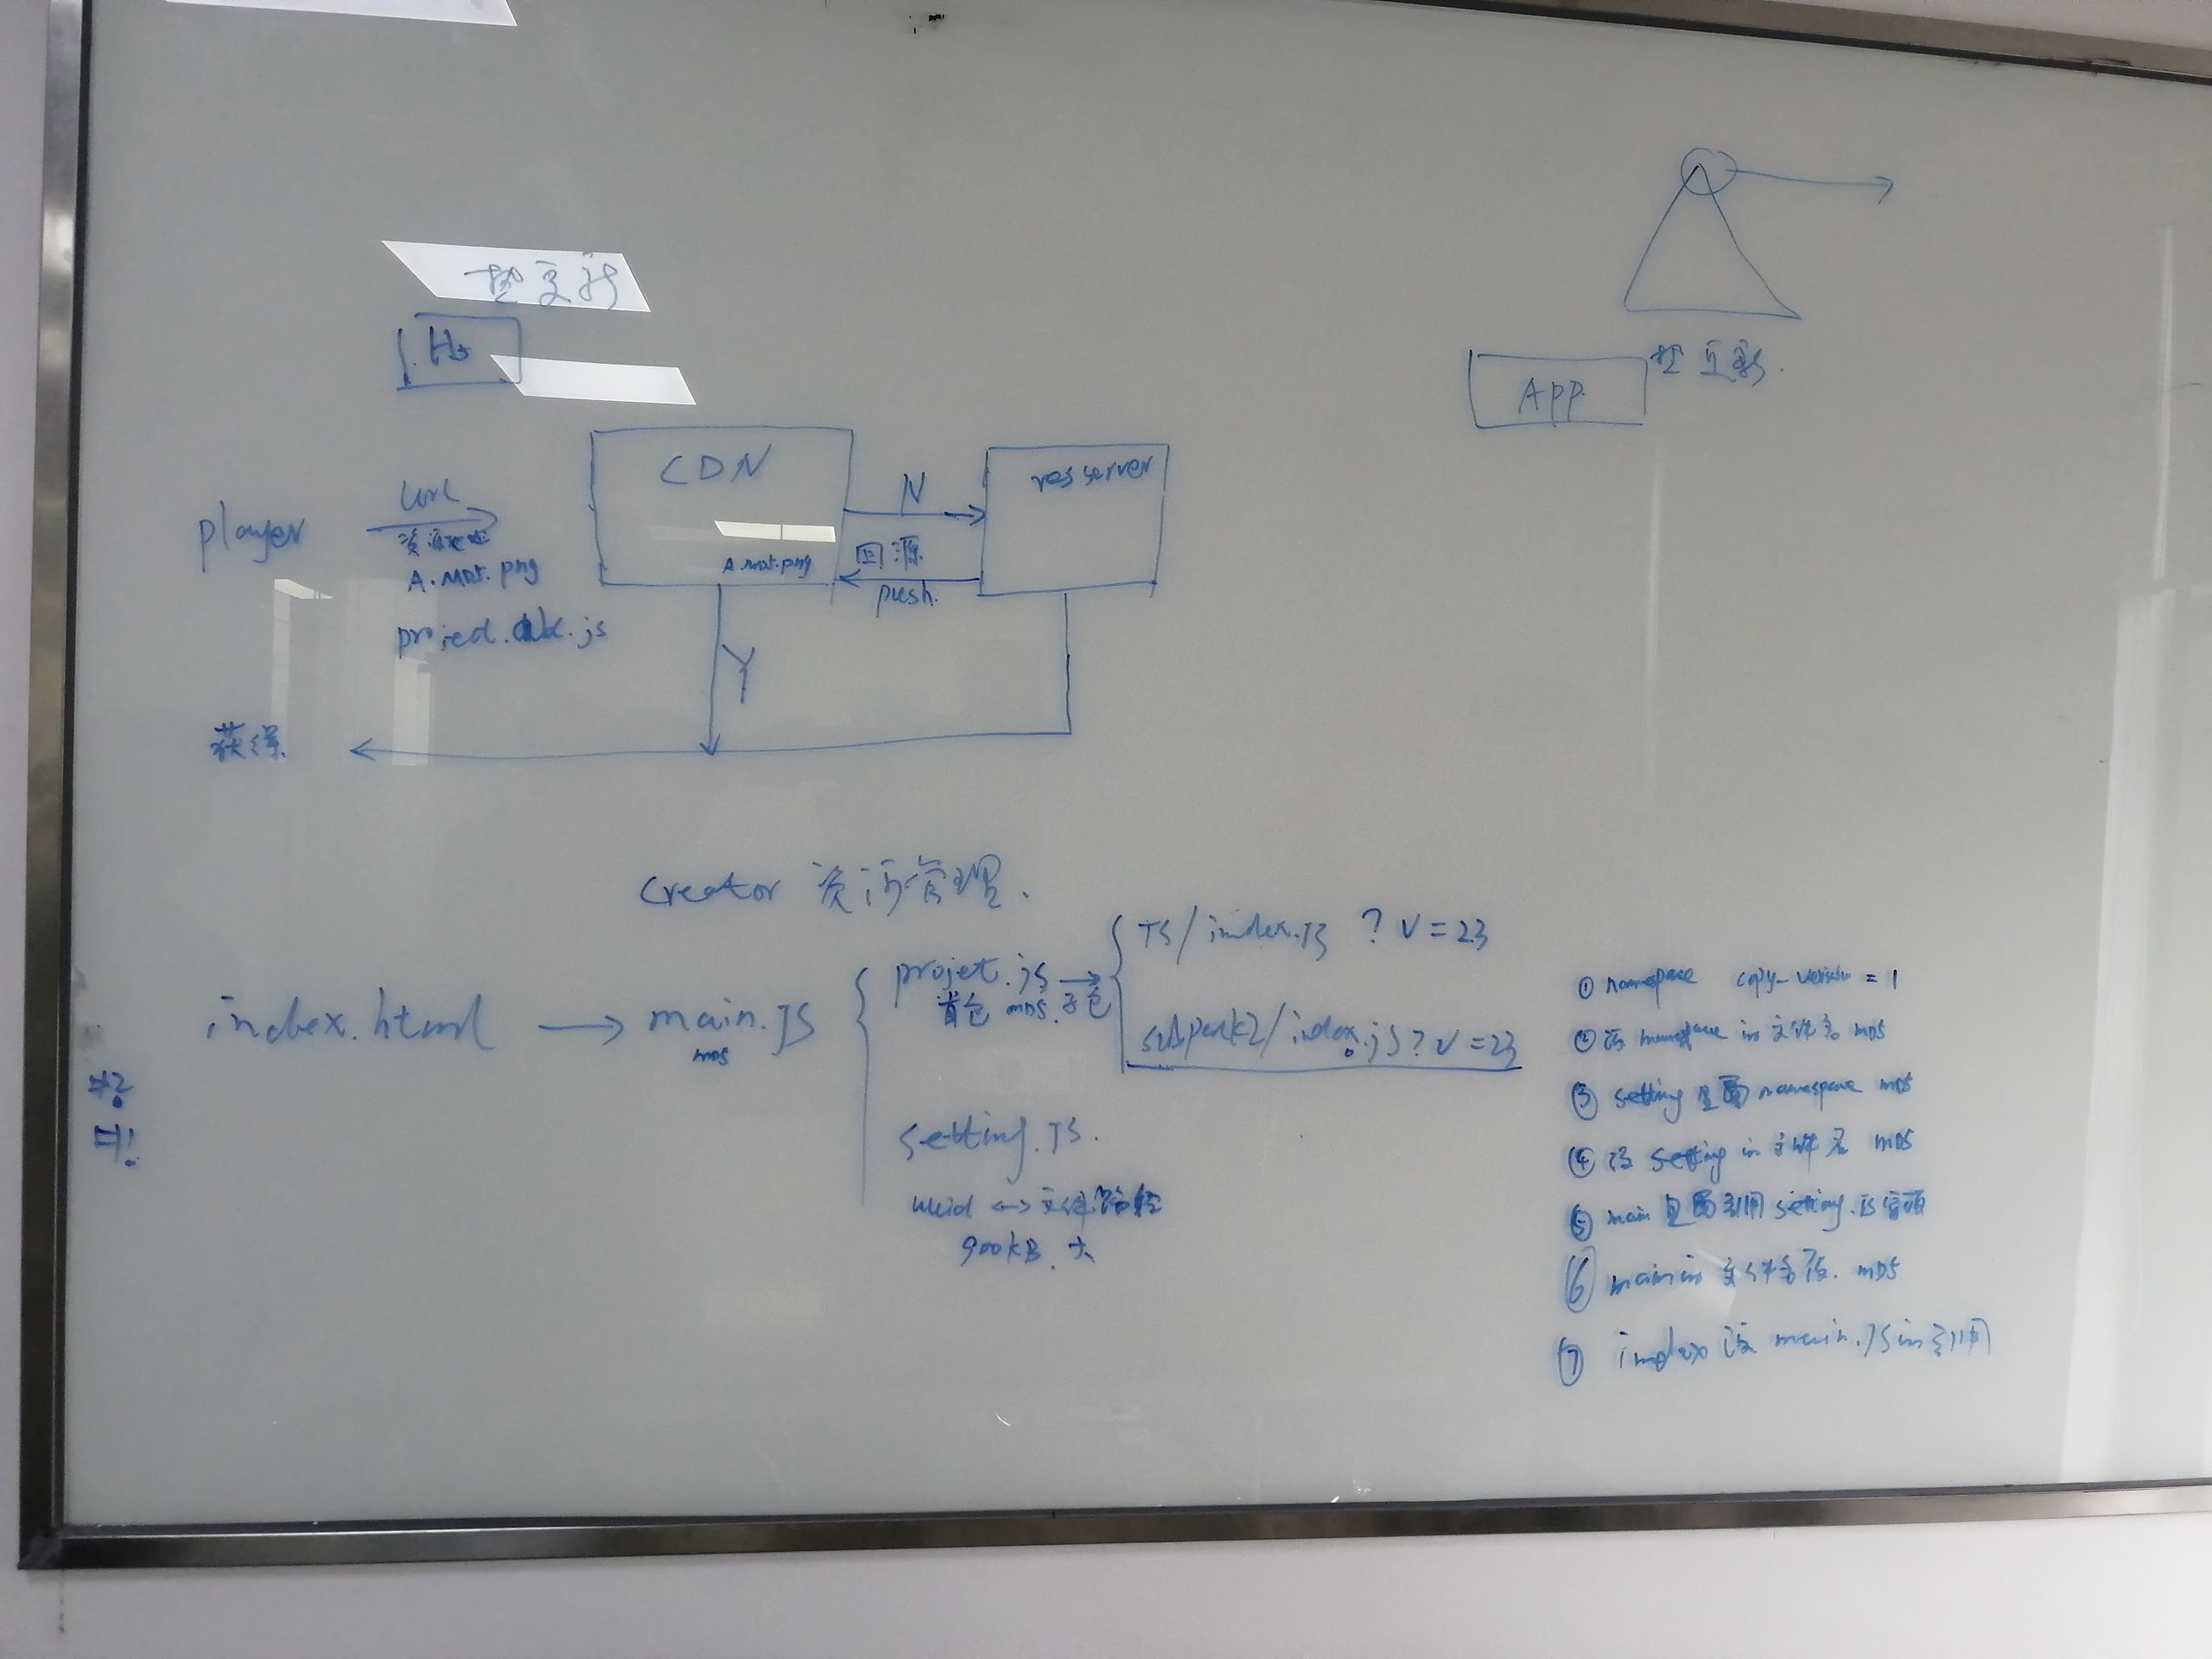 热更新
H5
热更新
App
CDN
res server
player
url
资源地址
A.md5.png
projed.abc.js
A.md5.png
N
回源
push
Y
获得
creator 资源管理.
index.html → main.JS
md5
projet.js →
首包 md5 子包
TS/index.JS ? v = 23
subpack2/index.js ? v = 23
setting.JS.
uuid ↔ 文件路径
900kB. 大
① namespace copy-version = 1
② 改 namespace in 文件名 md5
③ setting 里面 namespace md5
④ 改 setting in 文件名 md5
⑤ main 里面引用 setting.js
⑥ main in 文件名改. md5
⑦ index 改 main.JS in 引用